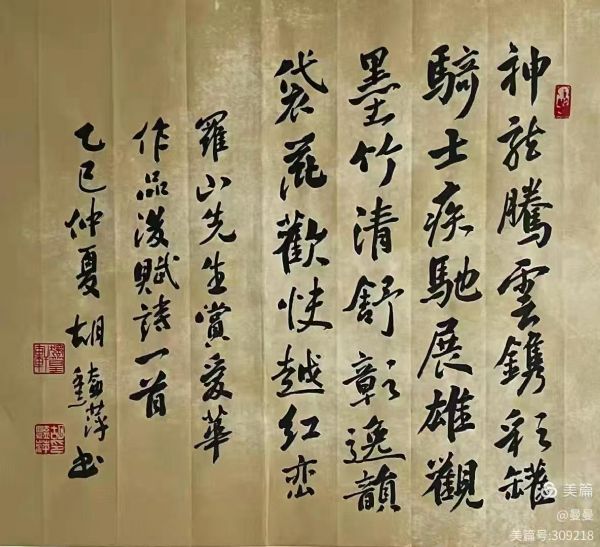 神龙騰雲鐫彩罐
騎士疾馳展雄觀
墨竹清舒彰逸韻
袋花歡快越紅巒
羅山先生賞爱華
作品後賦詩一首
乙巳仲夏 胡萍书
美篇
@曼曼
美篇号:309218